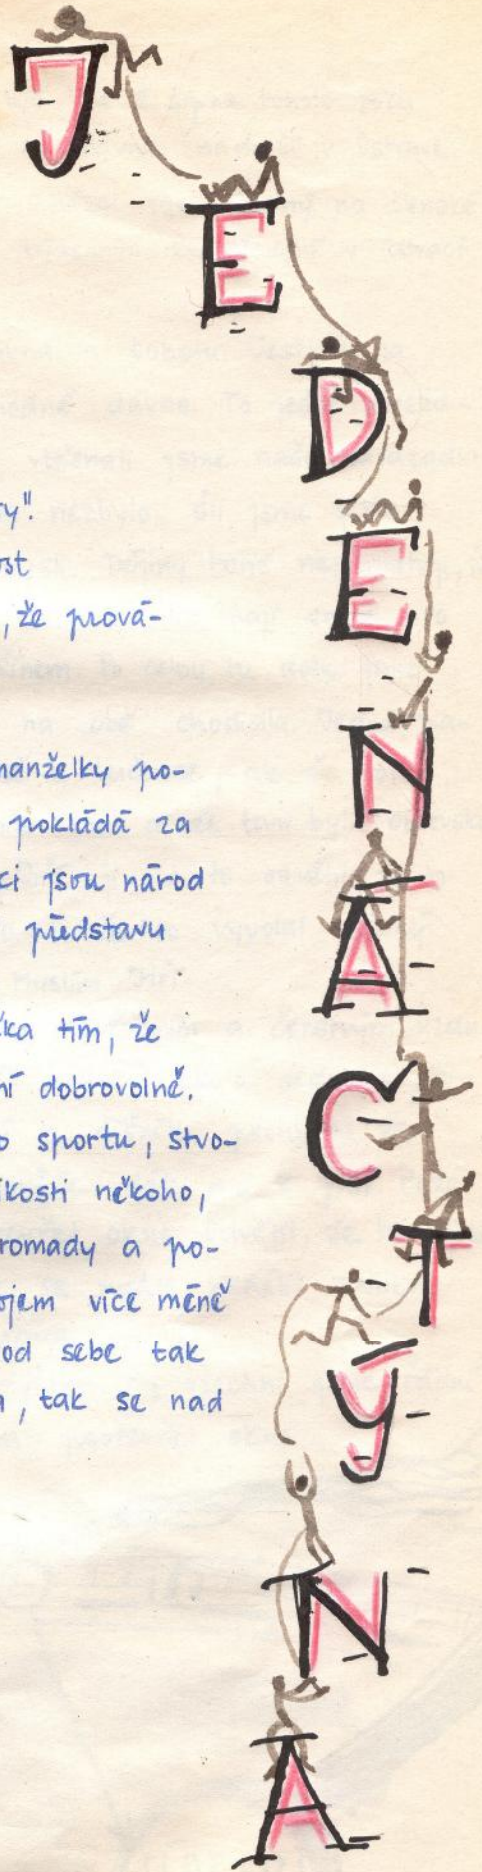 JEDENÁCTÝNA
y".
ost
, že prová-
manželky po-
pokládá za
ci jsou národ
představu
ka tím, že
ní dobrovolně.
o sportu, stvo-
kosti někoho,
romady a po-
ojem více méně
od sebe tak
, tak se nad